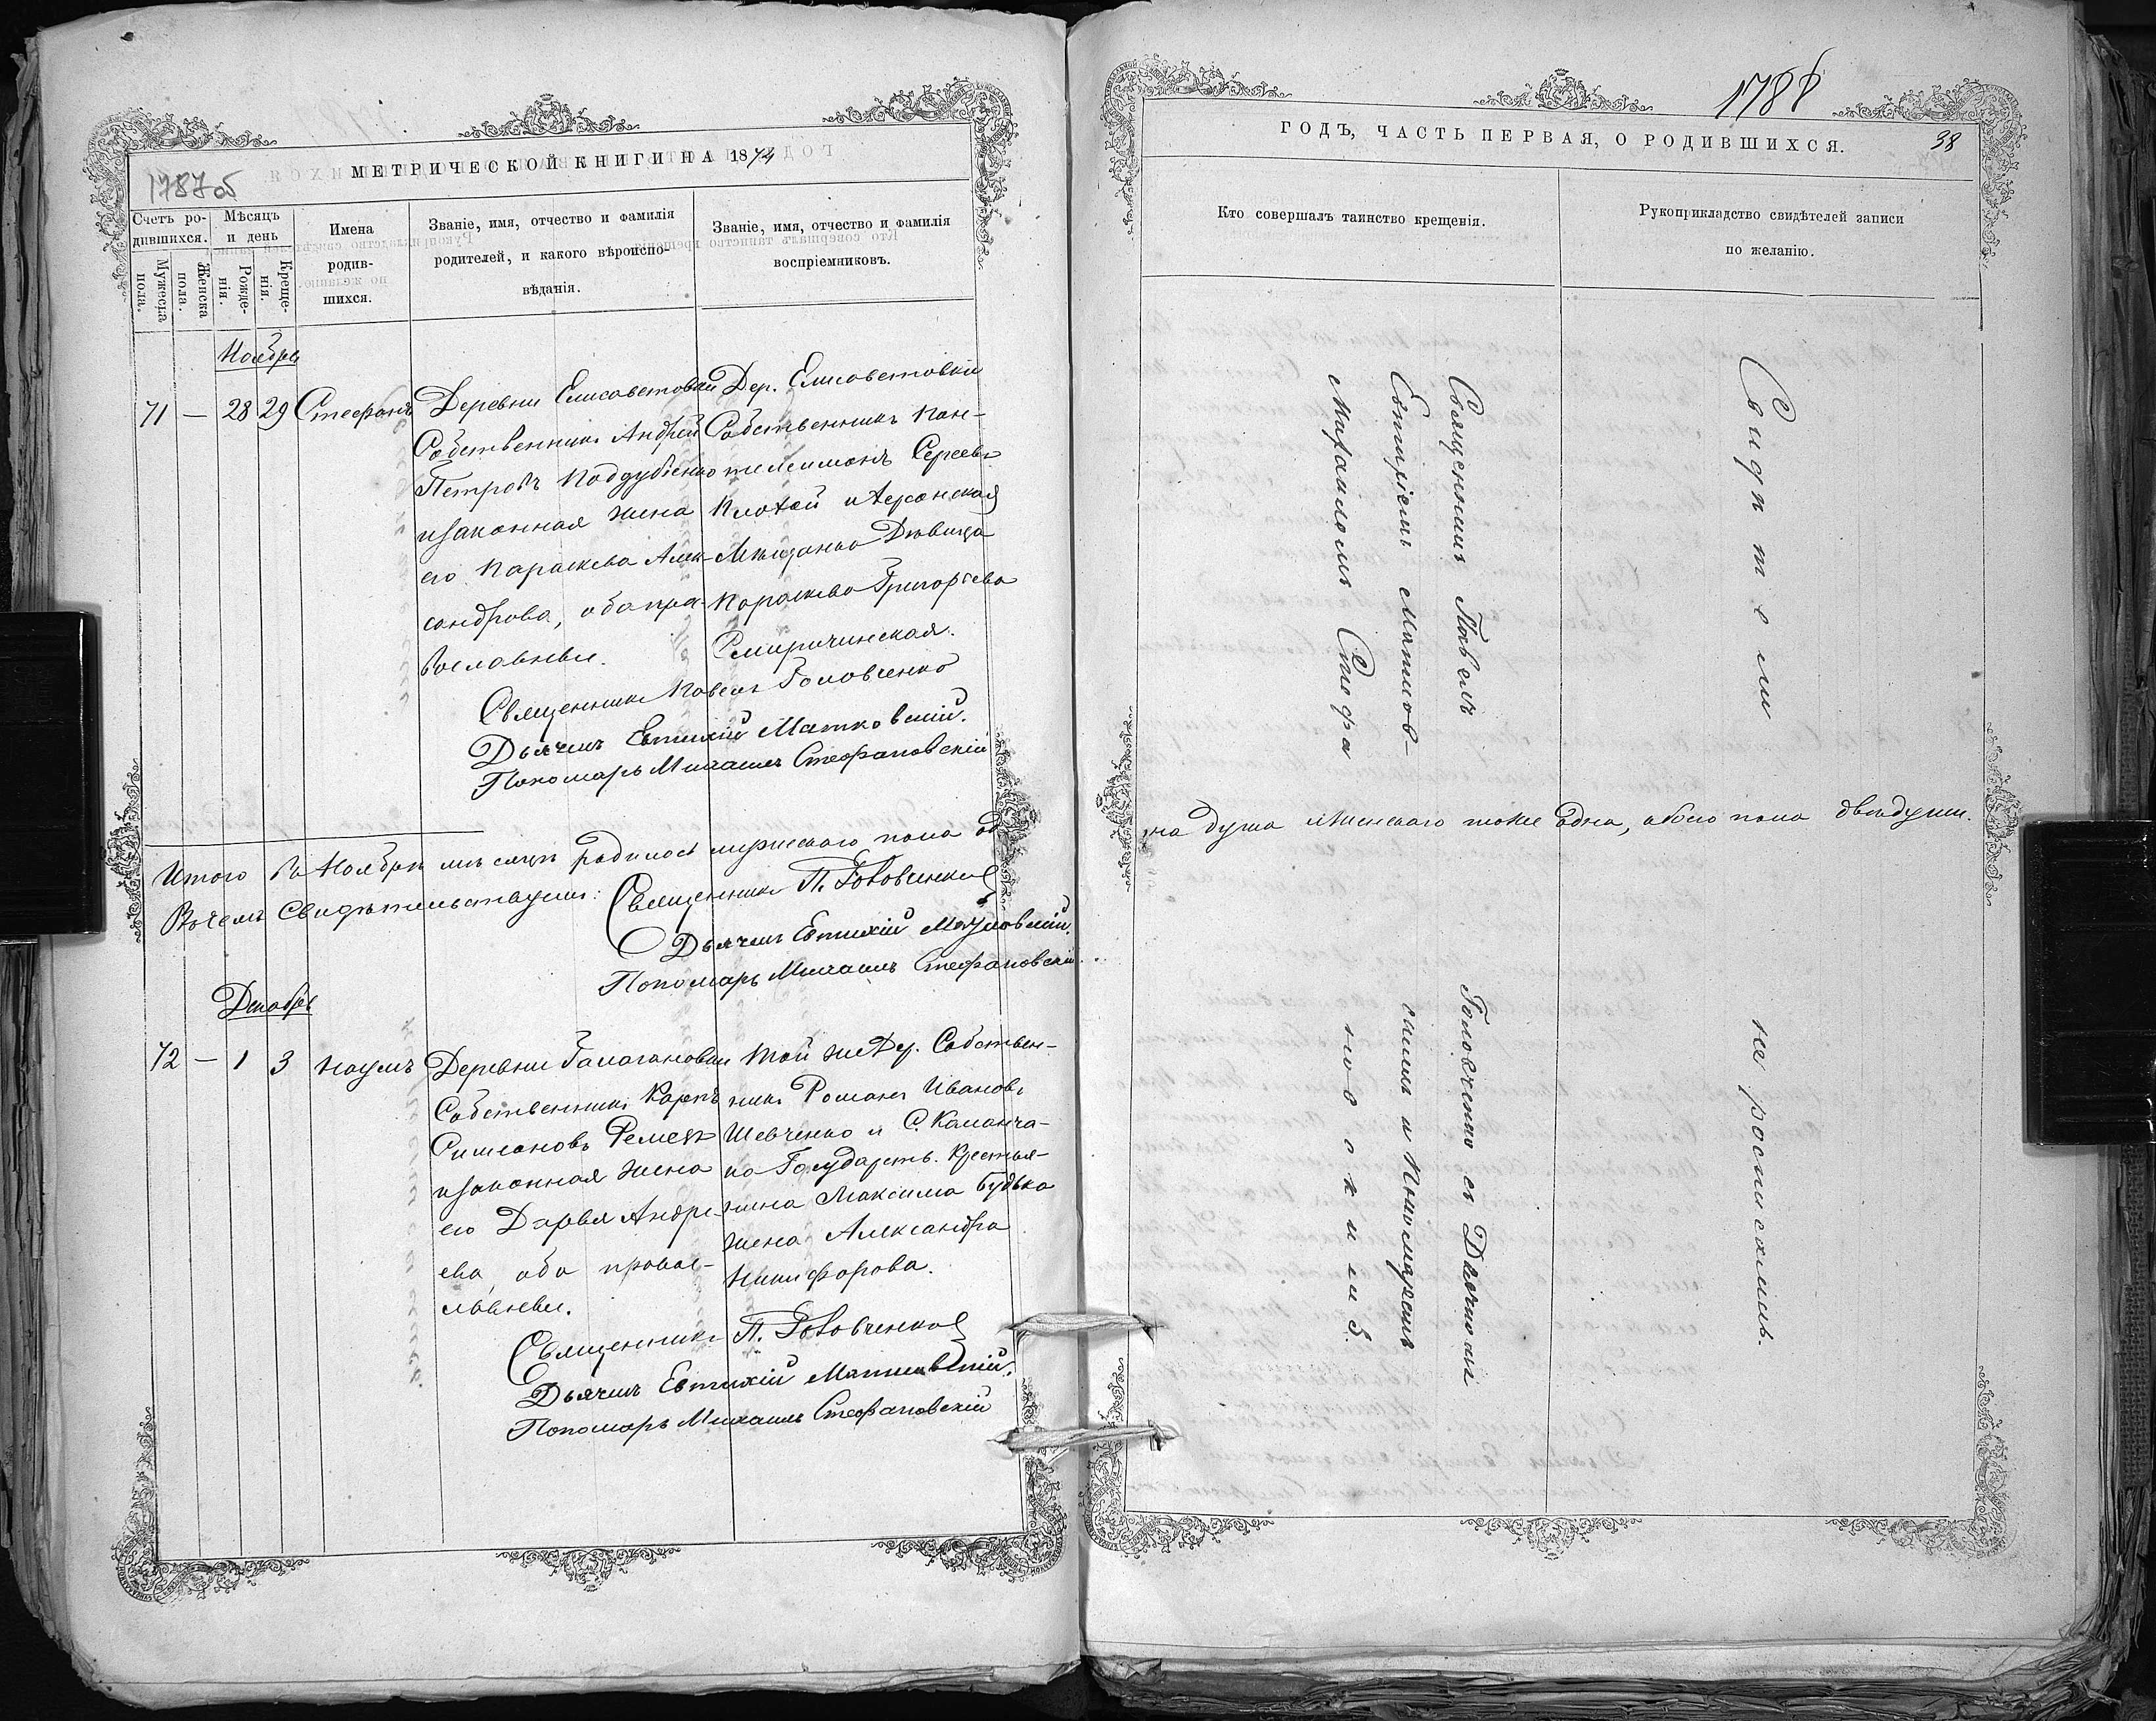 МЕТРИЧЕСКОЙ КНИГИ НА 1874
1787об
Счетъ ро-
дившихся.
Мужеска
пола.
Женска
пола.
Мѣсяцъ
и день
Рожде-
нія.
Креще-
нія.
Имена
родив-
шихся.
Званіе, имя, отчество и фамилія
родителей, и какого вѣроиспо-
вѣданія.
Званіе, имя, отчество и фамилія
воспріемниковъ.
Ноябрь
71 — 28 29 Стефанъ
Деревни Елисаветовки
Собственникъ Андрей
Петровъ Поддубенко
изаконная жена
его Параскева Алек-
сандрова, оба пра-
вославные.
Дер. Елисаветовки
Собственникъ Пан-
телеимонъ Сергеевъ
и Херсонская
Мѣщанка Дѣвица
Параскева Григорьева
Смиричинская.
Священникъ Павелъ Головченко
Дьячекъ Евтихій Матковскій.
Пономарь Михаилъ Стефановскій
Итого въ Ноябрѣ мѣсяцѣ родилось мужескаго пола од
Въ чемъ Свидѣтельствуемъ:
Священникъ П. Головченко
Дьячекъ Евтихій Матковскій.
Пономарь Михаилъ Стефановскій
Декабрь
72 — 1 3 Наумъ
Деревни Галагановки
Собственникъ Карпъ
Симеоновъ Ремез
изаконная жена
его Дарья Андре-
ева, оба правос-
лавные.
Той же Дер. Собствен-
никъ Романъ Ивановъ
Шевченко и С. Каманча-
ка Государств. Крестья-
нина Максима Будька
жена Александра
Никифорова.
Священникъ П. Головченко
Дьячекъ Евтихій Матковскій.
Пономарь Михаилъ Стефановскій
1788
38
ГОДЪ, ЧАСТЬ ПЕРВАЯ, О РОДИВШИХСЯ.
Кто совершалъ таинство крещенія.
Рукоприкладство свидѣтелей записи
по желанію.
Священникъ Павелъ Головченко съ Дьячкомъ
Евтихіемъ Матков-скимъ и Пономаремъ
Михаиломъ Стефановскимъ.
Свидѣтели не росписались.
на душа женскаго тоже одна, обоего пола двѣ души.